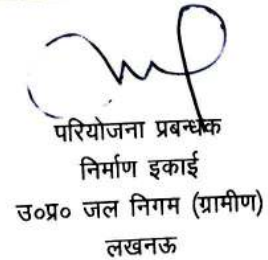 परियोजना प्रबन्धक
निर्माण इकाई
उ०प्र० जल निगम (ग्रामीण)
लखनऊ